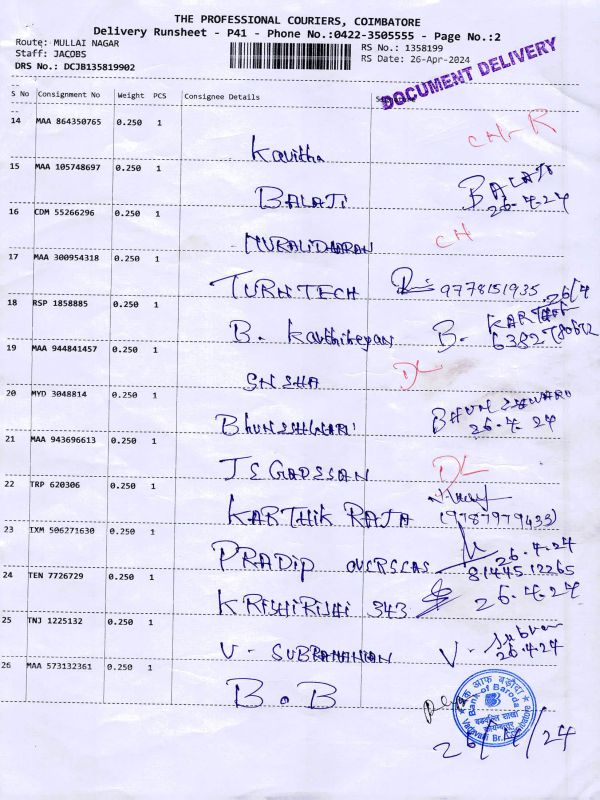 THE PROFESSIONAL COURIERS, COIMBATORE
Delivery Runsheet - P41 - Phone No.:0422-3505555 - Page No.:2
Route: MULLAI NAGAR
RS No.: 1358199
Staff: JACOBS
RS Date: 26-Apr-2024
DRS No.: DCJB135819902
DOCUMENT DELIVERY
S No Consignment No Weight PCS Consignee Details
14 MAA 864350765 0.250 1
CH-R
Kavitha
15 MAA 105748697 0.250 1
BALAJI BALAJI
26.4.24
16 CDM 55266296 0.250 1
MURALIDHARAN CH
17 MAA 300954318 0.250 1
TURN TECH 9778151935 26/4
18 RSP 1858885 0.250 1
B. Karthikeyan B.
19 MAA 944841457 0.250 1
SNSHA DL
20 MYD 3048814 0.250 1
26.4.24
21 MAA 943696613 0.250 1
DL
22 TRP 620306 0.250 1
KARTHIK RAJA (9787979433)
23 IXM 506271630 0.250 1
PRADIP OVERSEAS 26.4.24
8144512265
24 TEN 7726729 0.250 1
KRISHIRISHI 343 26.4.24
25 TNJ 1225132 0.250 1
V. SUBRAMANIAN V.
26.4.24
26 MAA 573132361 0.250 1
B.O.B
बैंक आफ बड़ौदा
Bank of Baroda
Vadavalli Br. Coimbatore
26/4/24